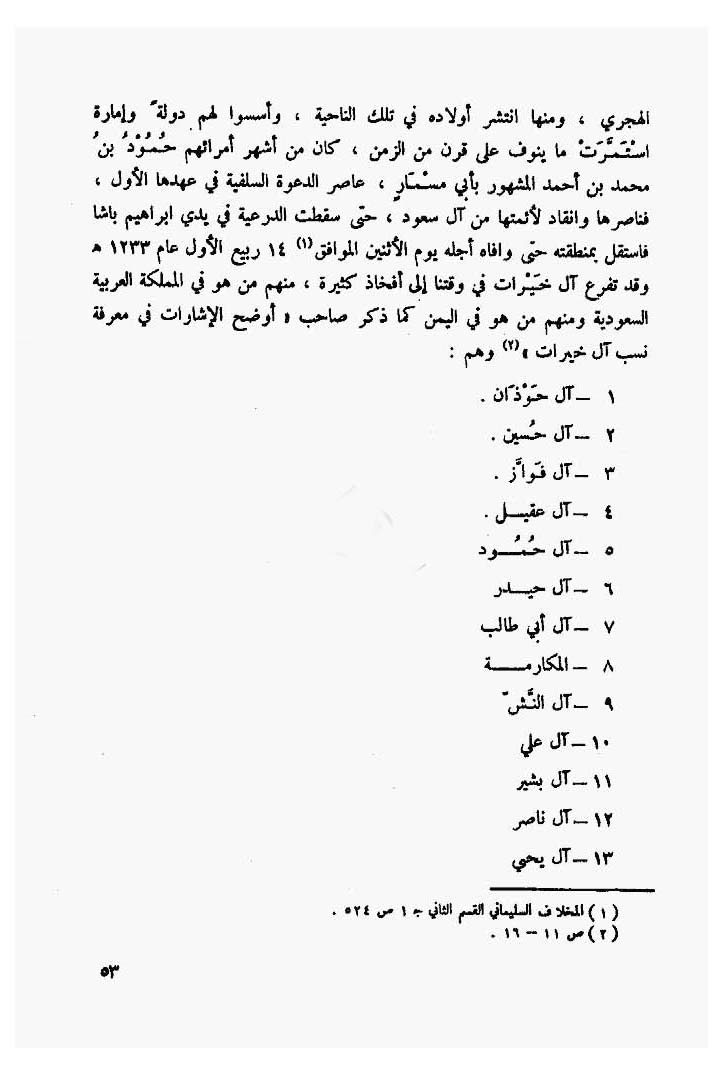 الهجري ، ومنها انتشر أولاده في تلك الناحية ، وأسسوا لهم دولةً وإمارة
استْتَمَرَّتْ ما ينوف على قرن من الزمن ، كان من أشهر أمرائهم حُمُوْدُ بنُ
محمد بن أحمد المشهور بأبي مسْمَارٍ ، عاصر الدعوة السلفية في عهدها الأول ،
فناصرها وانقاد لأئمتها من آل سعود ، حتّى سقطت الدرعية في يدي ابراهيم باشا
فاستقل بمنطقته حتّى وافاه أجله يوم الأثنين الموافق(١) ١٤ ربيع الأول عام ١٢٣٣ ه
وقد تفرع آل خَيْرات في وقتنا إلى أفخاذ كثيرة ، منهم من هو في المملكة العربية
السعودية ومنهم من هو في اليمن كما ذكر صاحب « أوضح الإشارات في معرفة
نسب آل خيرات »(٢) وهم :
١ – آل حَوْذَان .
٢ – آل حُسين .
٣ – آل فَوَّاز .
٤ – آل عقيـل .
٥ – آل حُمُـود
٦ – آل حيـدر
٧ – آل أبي طالب
٨ – المكارمـة
٩ – آل النَّشّ
١٠ – آل علي
١١ – آل بشير
١٢ – آل ناصر
١٣ – آل يحيي
(١) المخلاف السليماني القسم الثاني ج ١ ص ٥٢٤ .
(٢) ص ١١ – ١٦ .
٥٣